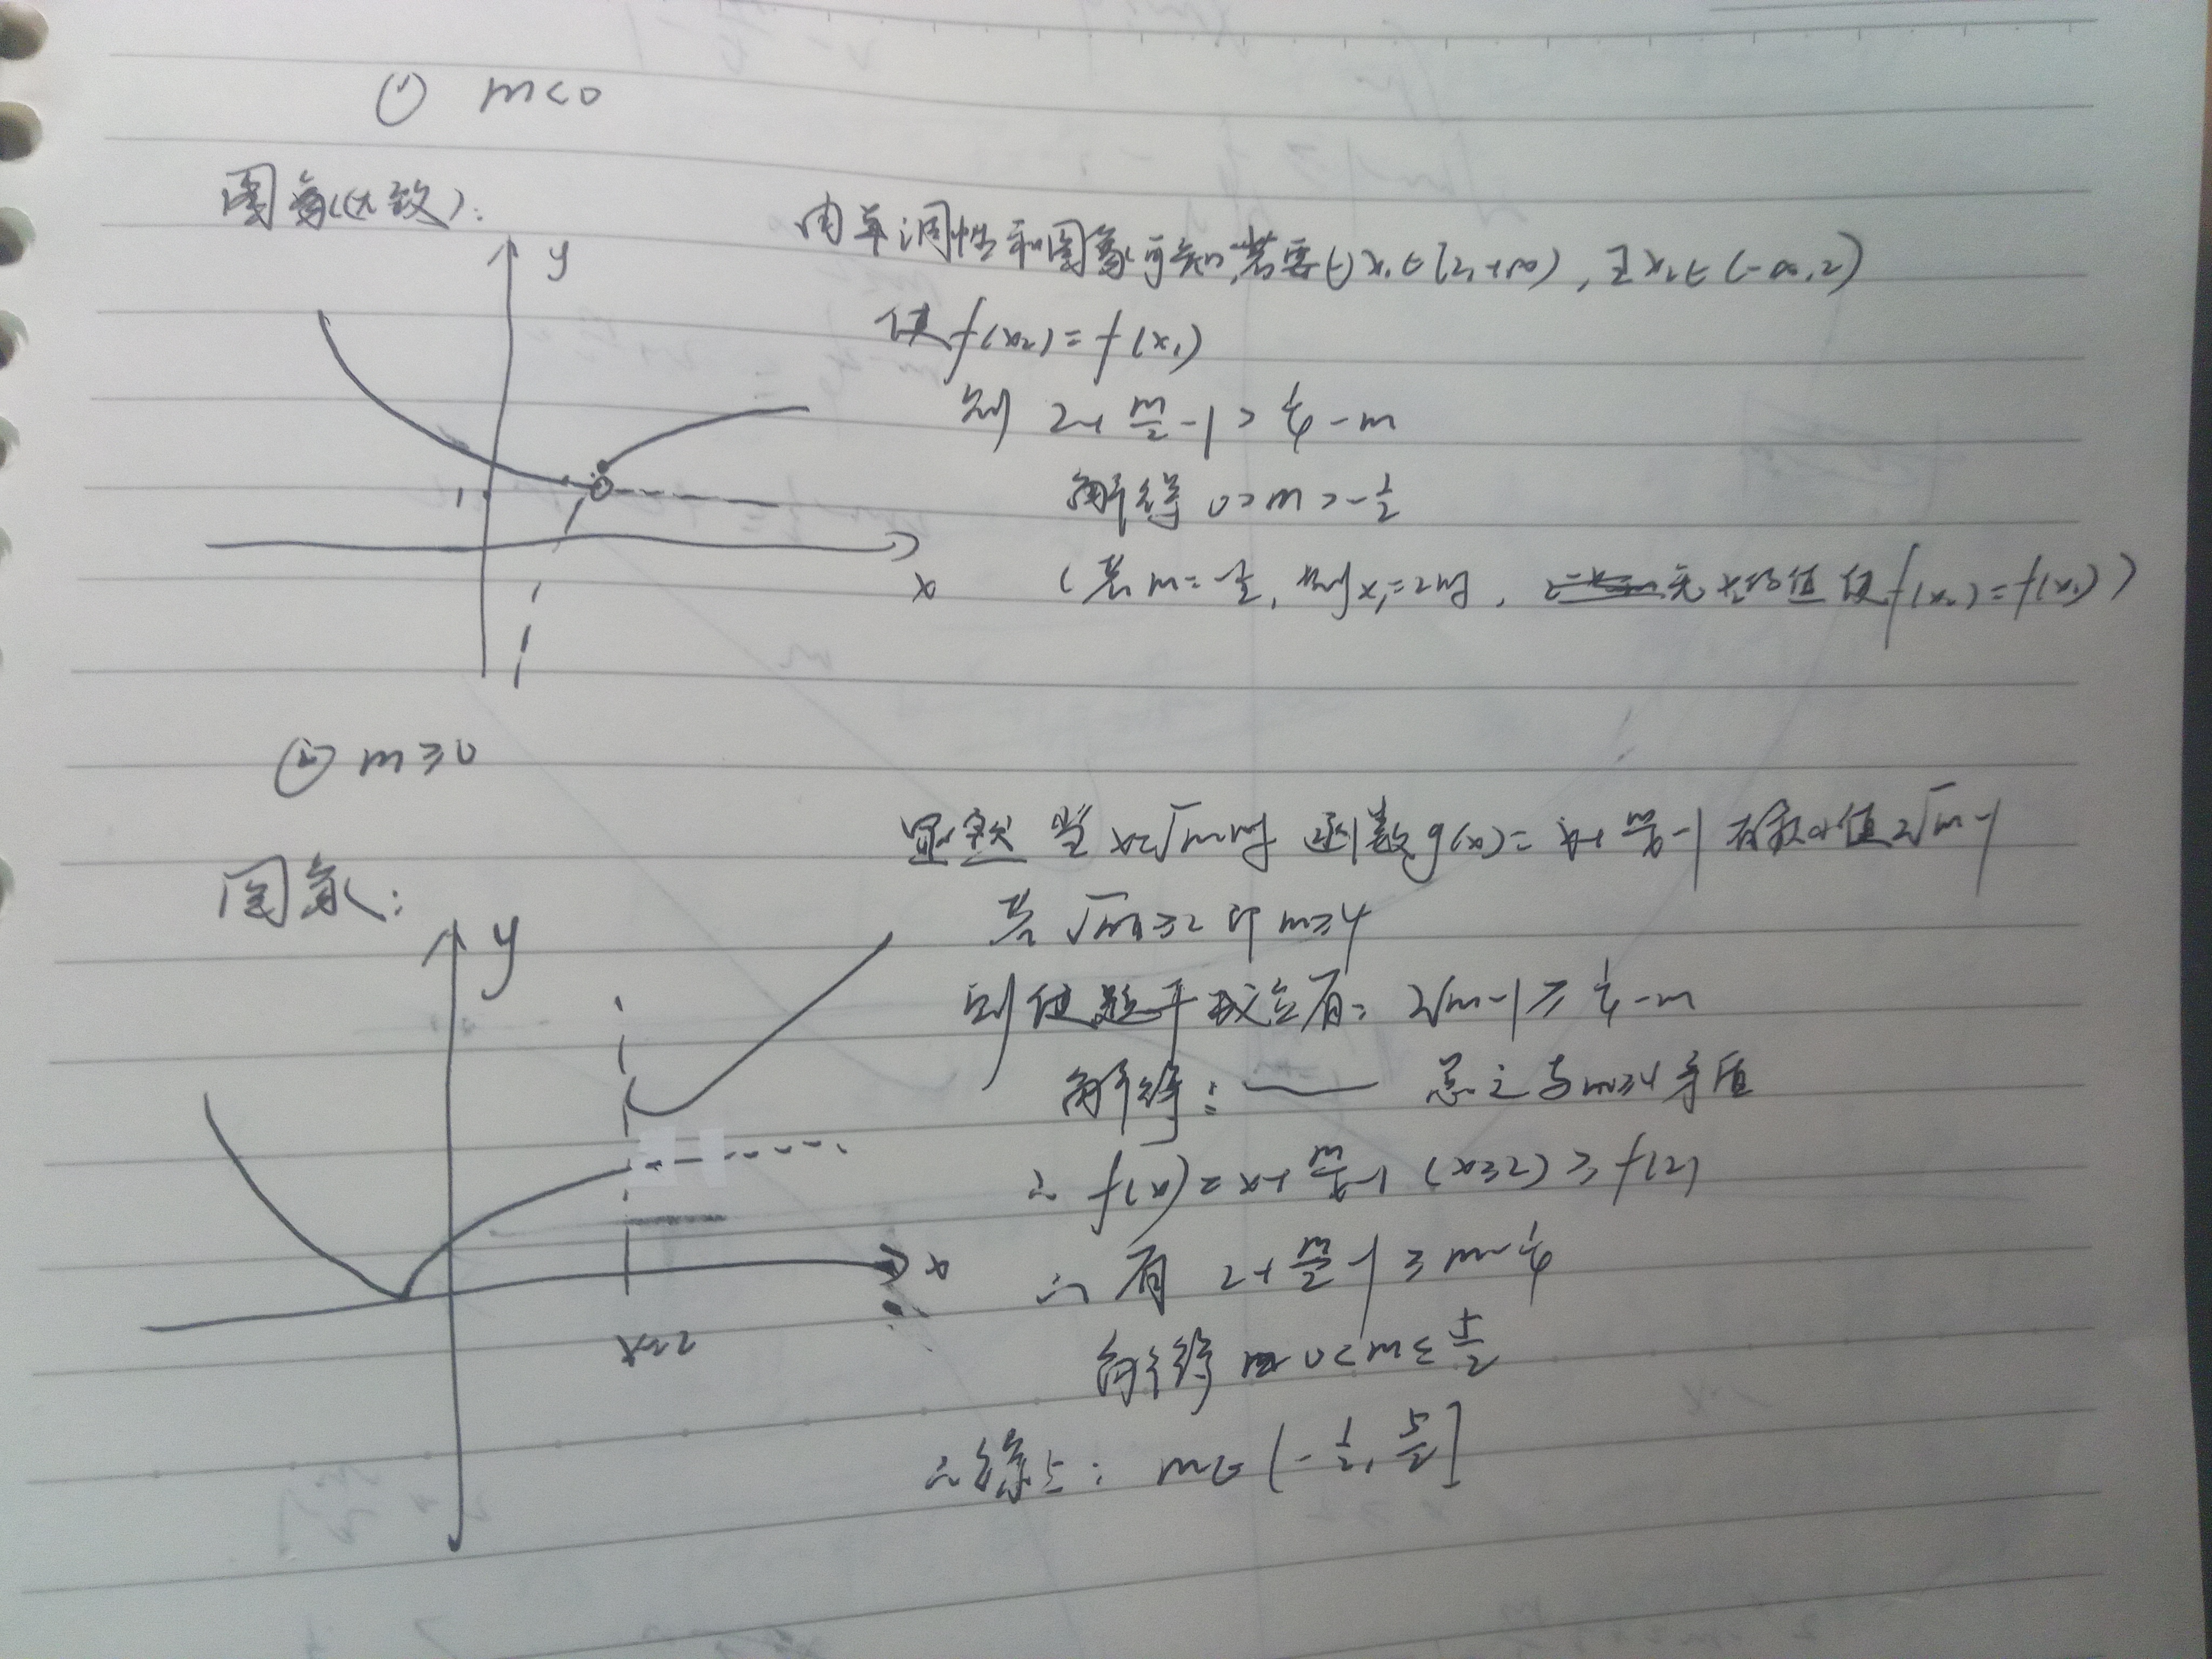 ① m<0
图象(大致):
y
1
x
由单调性和图象可知,若要∀x₁∈[2,+∞),∃x₂∈(-∞,2)
使f(x₂)=f(x₁)
则 2+m/2-1>1/4-m
解得 0>m>-1/2
(若m=-1/2,则x₁=2时, 无x₂的值使f(x₂)=f(x₁))
② m≥0
图象:
y
x
x=2
显然 当x=√m时 函数g(x)=x+m/x-1有最小值2√m-1
若√m≥2即m≥4
则使题干成立有: 2√m-1≥1/4-m
解得: —— 总之与m≥4矛盾
∴ f(x)=x+m/x-1 (x≥2)≥f(2)
∴ 有 2+m/2-1≥m-1/4
解得 0<m≤5/2
∴综上: m∈(-1/2,5/2]